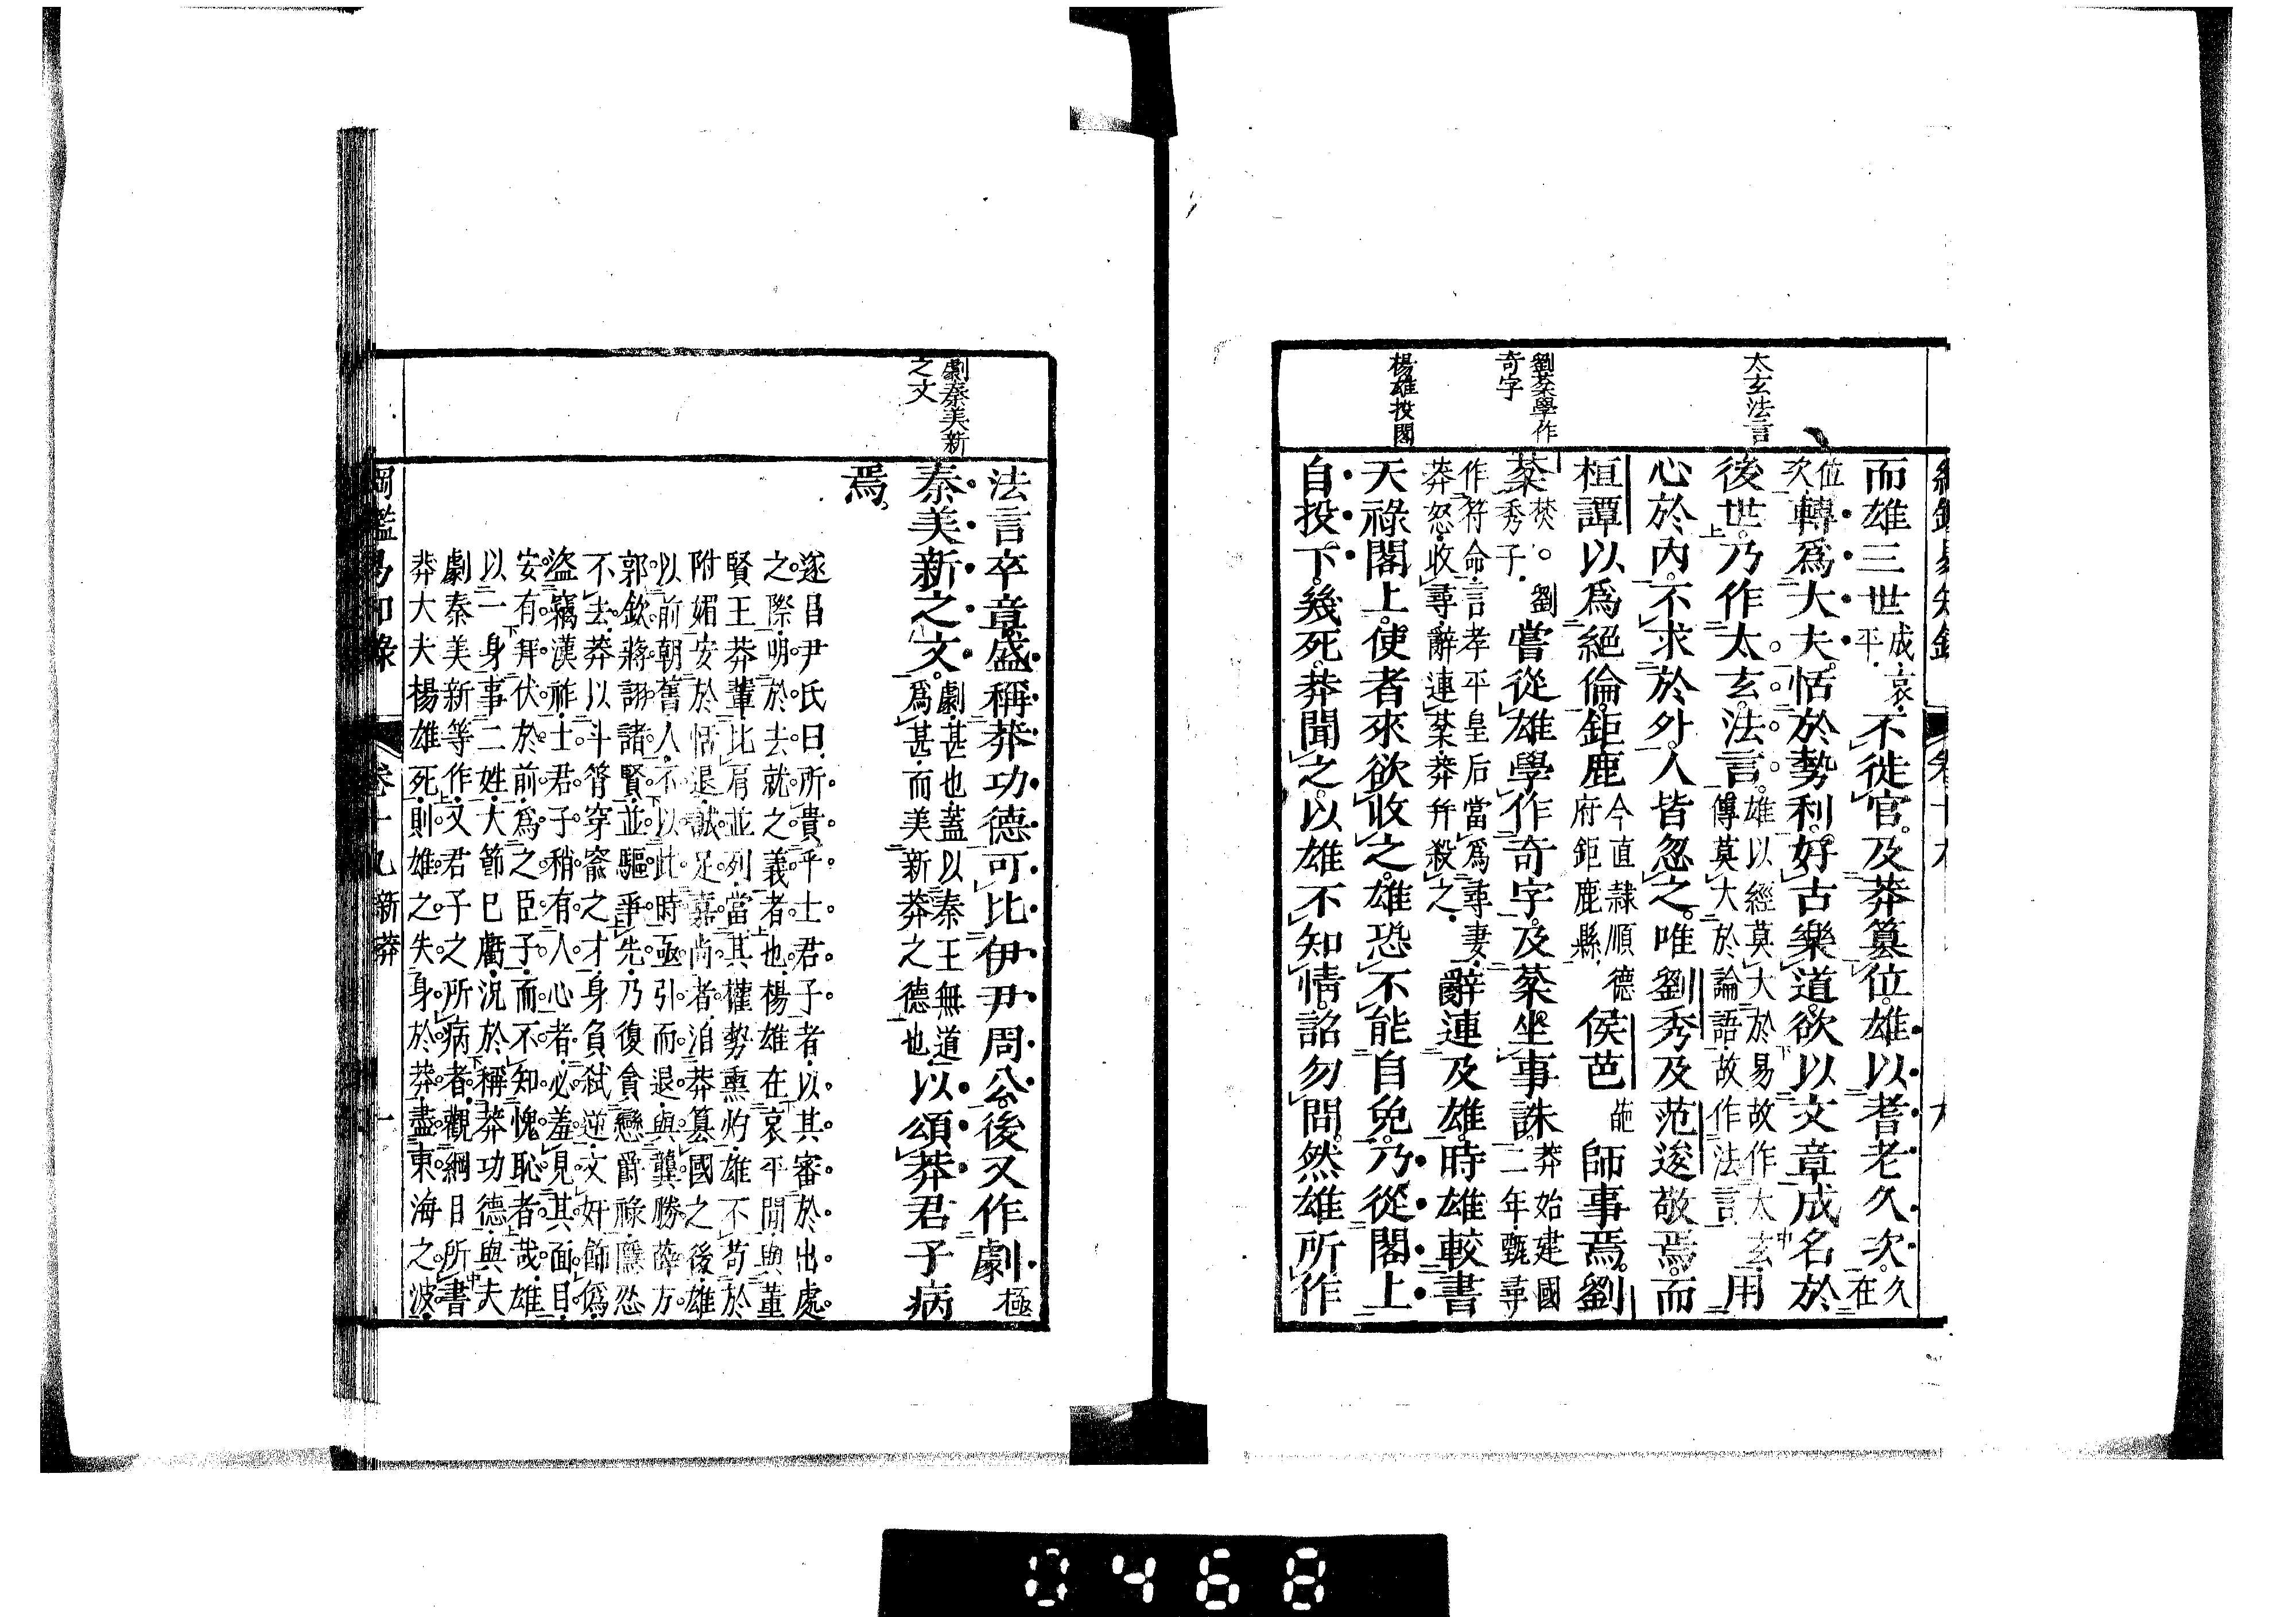 太玄法言
劉棻學作
奇字
楊雄投閣
而雄三世成哀平不徙官及莽篡位雄以耆老久次久在
位次轉爲大夫恬於勢利好古樂道欲以文章成名於
後世乃作太玄法言雄以經莫大於易故作太玄傳莫大於論語故作法言用
心於內不求於外人皆忽之唯劉秀及范逡敬焉而
桓譚以爲絕倫鉅鹿今直隷順德府鉅鹿縣侯芭葩師事焉劉
棻棼。劉秀子嘗從雄學作奇字及棻坐事誅莽始建國二年甄尋
作符命言孝平皇后當爲尋妻莽怒收尋辭連棻莽幷殺之辭連及雄時雄較書
天祿閣上使者來欲收之雄恐不能自免乃從閣上
自投下幾死莽聞之以雄不知情詔勿問然雄所作
劇秦美新
之文
法言卒章盛稱莽功德可比伊尹周公後又作劇極
秦美新之文劇甚也蓋以秦王無道爲甚而美新莽之德也以頌莽君子病
焉
遂昌尹氏曰所貴乎士君子者以其審於出處
之際明於去就之義者也楊雄在哀平間與董
賢王莽輩比肩並列當其權勢熏灼雄不苟於
附媚安於恬退誠足嘉尚者洎莽篡國之後雄
以前朝舊人不以此時亟引而退與龔勝薛方
郭欽蔣詡諸賢並驅爭先乃復貪戀爵祿隱忍
不去莽以斗筲穿窬之才身負弒逆文奸飾僞
盜竊漢祚士君子稍有人心者必羞見其面目
安有拜伏於前爲之臣子而不知愧恥者哉雄
以一身事二姓大節已虧況於稱莽功德與夫
劇秦美新等作文君子之所病者觀綱目所書
莽大夫楊雄死則雄之失身於莽盡東海之波
綱鑑易知錄 卷十九 新莽 十
0468